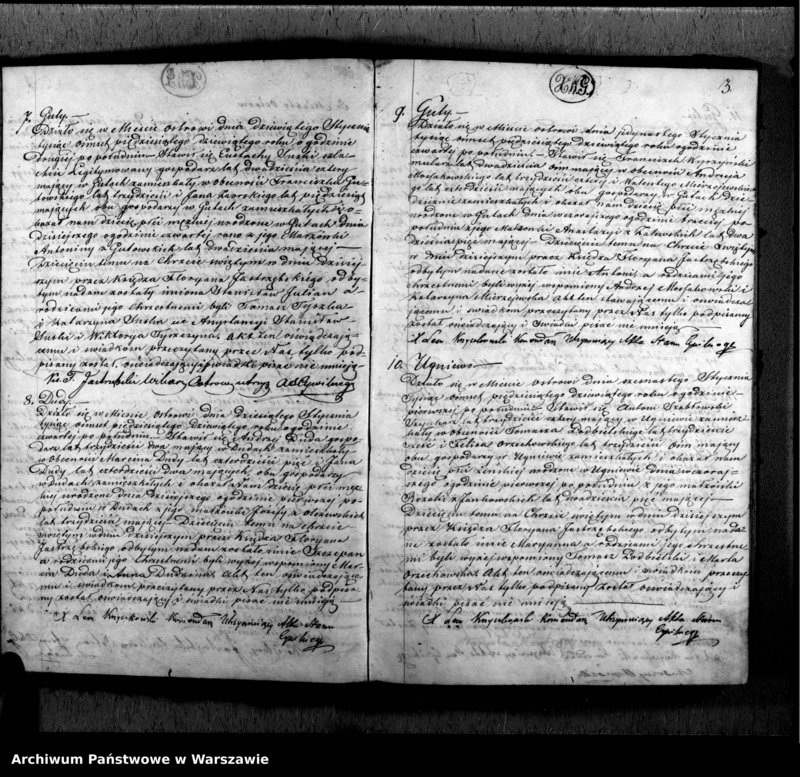 7. Guty.
Działo się w Mieście Ostrowi dnia dziewiątego Stycznia
tysiąc ośmset pięćdziesiątego dziewiątego roku o godzinie
drugiej po południu. Stawił się Eustachy Suski szla-
chcic legitymowany gospodarz lat dwadzieścia cztery
mający w Gutach zamieszkały w obecności Franciszka Gu-
towskiego lat trzydzieści i Jana
mających obu gospodarzy w Gutach zamieszkałych i o-
kazał nam dziecię płci męzkiej urodzone w Gutach dnia
dzisiejszego o godzinie czwartej rano z jego Małżonki
Antoniny z Gutowskich lat dwadzieścia mającej
Dziecięciu temu na Chrzcie świętym w dniu dzisiej-
szym przez Księdza Floryana Jastrzębskiego odby-
tym nadane zostały imiona Stanisław Julian a
rodzicami jego chrzestnemi byli Tomasz
i Katarzyna Suska w Assystencyi Stanisław
Suski i Wiktorya Akt ten oświadczają-
cemu i świadkom przeczytany przez Nas tylko pod-
pisany został, oświadczający i świadki pisać nie umieją
8. Dudy.
Działo się w Mieście Ostrowi dnia dziewiątego Stycznia
tysiąc ośmset pięćdziesiątego dziewiątego roku o godzinie
czwartej po południu. Stawił się Andrzej Duda gospo-
darz lat trzydzieści dwa mający w Dudach zamieszkały
w obecności Marcina Dudy lat trzydzieści pięć i Jana
Dudy lat czterdzieści dwa mających, obu gospodarzy
w Dudach zamieszkałych i okazał Nam dziecię płci męz-
kiej urodzone dnia dzisiejszego o godzinie pierwszej po
południu w Dudach z jego małżonki Józefy z
lat trzydzieści mającej. Dziecięciu temu na chrzcie
świętym w dniu dzisiejszym przez Księdza Floryana
Jastrzębskiego odbytym nadane zostało imie Szczepan
a rodzicami jego Chrzestnemi byli wyżej wspomniany Mar-
cin Duda i Anna Akt ten oświadczające-
mu i świadkom przeczytany przez Nas tylko podpisa-
ny został, oświadczający i świadki pisać nie umieją
X Leon Komendarz Utrzymujący Akta Stanu
Cywilnego
249
3
9. Guty.
Działo się w Mieście Ostrowi dnia jedynastego Stycznia
tysiąc ośmset pięćdziesiątego dziewiątego roku o godzinie
czwartej po południu. Stawił się Franciszek
mularz lat dwadzieścia ośm mający w obecności Andrzeja
lat trzydzieści cztery i Walentego Mierzejewskie-
go lat czterdzieści mających obu gospodarzy w Gutach dzie-
dzicznie zamieszkałych i okazał nam dziecię płci męzkiej
urodzone w Gutach dnia wczorajszego o godzinie trzeciej po
południu z jego Małżonki Anastazyi z lat dwa-
dzieścia pięć mającej. Dziecięciu temu na Chrzcie Świętym
w dniu dzisiejszym przez Księdza Floryana Jastrzębskiego
odbytym nadane zostało imie Antoni, a rodzicami jego
chrzestnemi byli wyżej wspomniany Andrzej i
Katarzyna Mierzejewska Akt ten stawającemu i oświadcza-
jącemu i świadkom przeczytany przez Nas tylko podpisany
został oświadczający i świadki pisać nie umieją
X Leon Komendarz Utrzymujący Akta Stanu Cywilnego
10. Ugniewo
Działo się w Mieście Ostrowi dnia szesnastego Stycznia
tysiąc ośmset pięćdziesiątego dziewiątego roku o godzinie
pierwszej po południu. Stawił się Antoni
lat trzydzieści cztery mający w Ugniewie zamiesz-
kały w obecności Tomasza Podbielskiego lat trzydzieści
i Felixa Orzechowskiego lat trzydzieści ośm mający
obu gospodarzy w Ugniewie zamieszkałych i okazał nam
dziecię płci żeńskiej urodzone w Ugniewie dnia wczoraj-
szego o godzinie pierwszej po południu z jego małżonki
Rozalii z lat dwadzieścia pięć mającej
Dziecięciu temu na Chrzcie świętym w dniu dzisiejszym
przez Księdza Floryana Jastrzębskiego odbytym nada-
ne zostało imie Maryanna, a rodzicami jego chrzestne-
mi byli wyżej wspomniany Tomasz Podbielski i Marta
Orzechowska Akt ten oświadczającemu i świadkom przeczy-
tany przez Nas tylko podpisany został oświadczający i
świadki pisać nie umieją
X Leon Komendarz Utrzymujący Akta Stanu
Cywilnego
Archiwum Państwowe w Warszawie